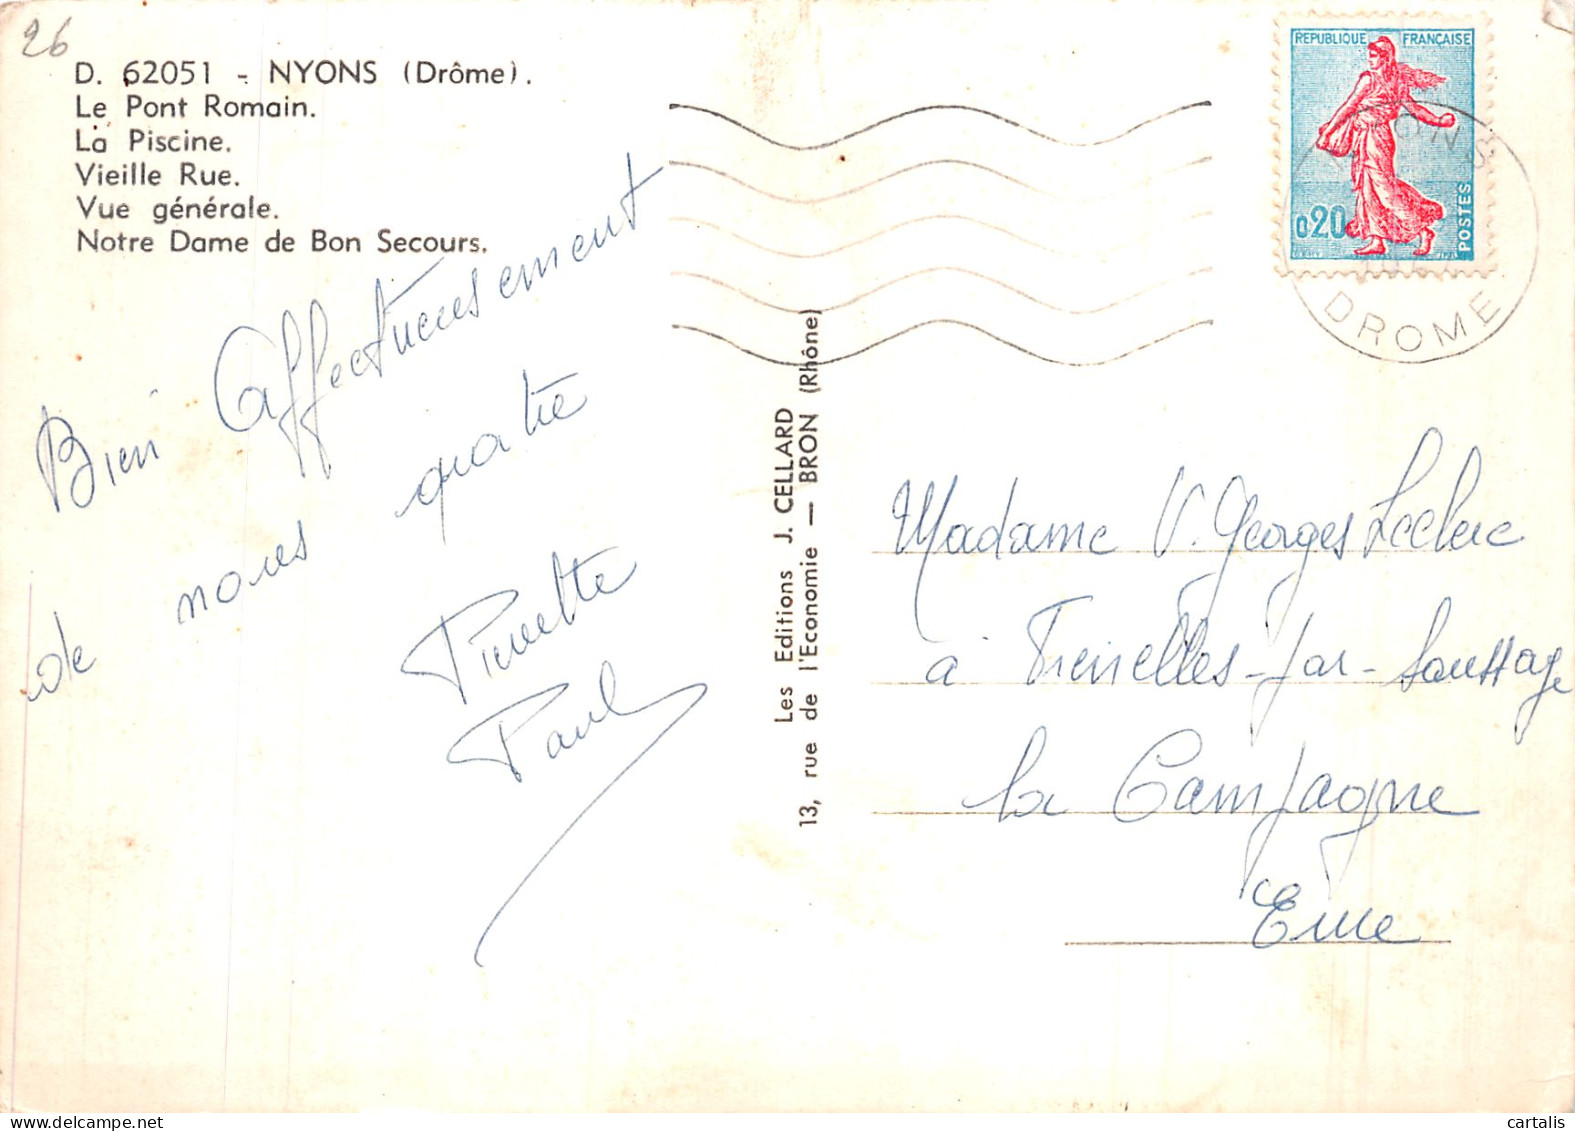 26
D. 62051 - NYONS (Drôme).
Le Pont Romain.
La Piscine.
Vieille Rue.
Vue générale.
Notre Dame de Bon Secours.
Bien Affectueusement
de nous quatre
Pierrette
Paul
Les Editions J. CELLARD
13, rue de l'Economie — BRON (Rhône)
REPUBLIQUE FRANÇAISE
0,20
POSTES
NYONS
DROME
Madame V. Georges Leclerc
à Treixelles-par-Saussay
la Campagne
Eure
cartalis